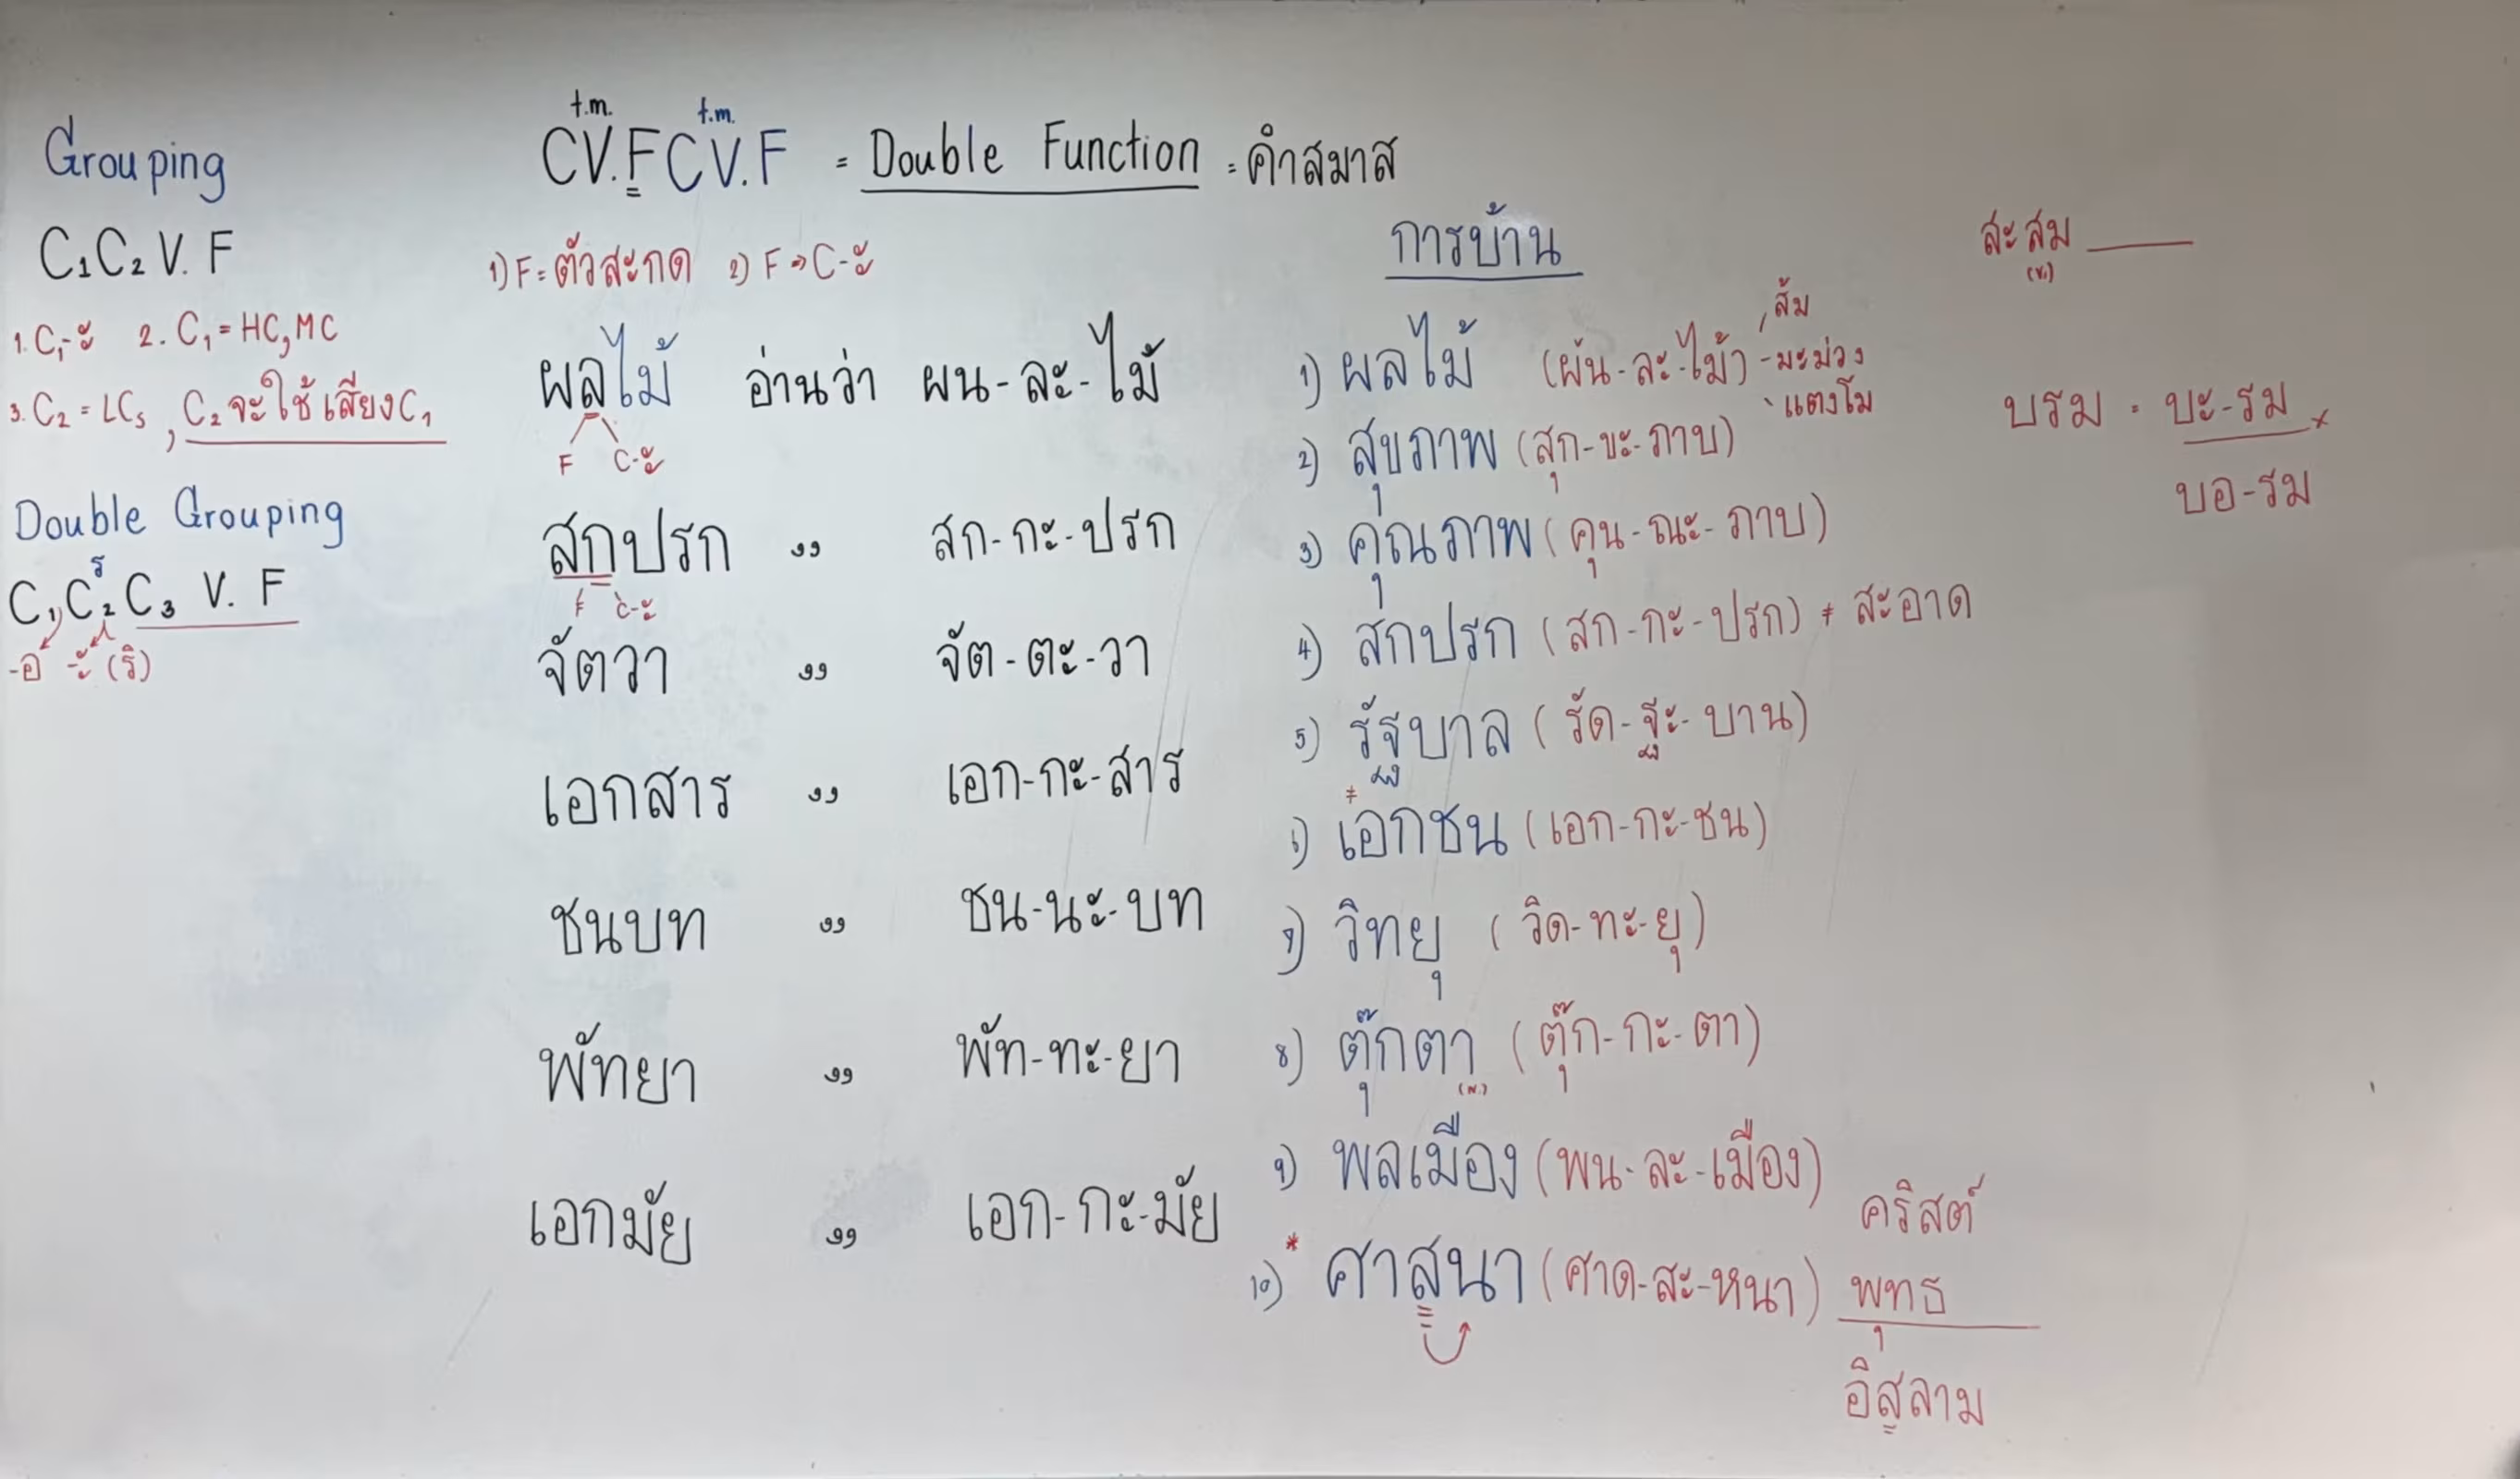 Grouping
C₁C₂ V. F
1. C₁-ะ 2. C₁ = HC, MC
3. C₂ = LCs, C₂ จะใช้เสียง C₁
Double Grouping
ร
C₁C₂C₃ V. F
-อ -ะ (ริ)
t.m. t.m.
CV.FCV.F = Double Function = คำสมาส
1) F = ตัวสะกด 2) F → C-ะ
ผลไม้ อ่านว่า ผน-ละ-ไม้
F C-ะ
สกปรก ,, สก-กะ-ปรก
F C-ะ
จัตวา ,, จัต-ตะ-วา
เอกสาร ,, เอก-กะ-สาร
ชนบท ,, ชน-นะ-บท
พัทยา ,, พัท-ทะ-ยา
เอกมัย ,, เอก-กะ-มัย
การบ้าน
1) ผลไม้ (ผน-ละ-ไม้) ส้ม
-มะม่วง
แตงโม
2) สุขภาพ (สุก-ขะ-ภาบ)
3) คุณภาพ (คุน-ณะ-ภาบ)
4) สกปรก (สก-กะ-ปรก) ≠ สะอาด
5) รัฐบาล (รัด-ฐะ-บาน)
≠
6) เอกชน (เอก-กะ-ชน)
7) วิทยุ (วิด-ทะ-ยุ)
8) ตุ๊กตา (ตุ๊ก-กะ-ตา)
(N.)
9) พลเมือง (พน-ละ-เมือง)
10) * ศาสนา (ศาด-สะ-หนา)
คริสต์
พุทธ
อิสลาม
สะสม
(V.)
บรม = บะ-รม ×
บอ-รม